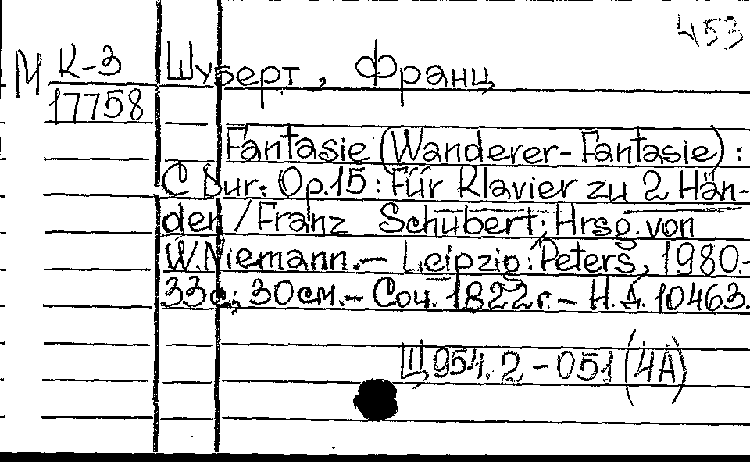 453
М К-3 Шуберт, Франц
17758
Fantasie (Wanderer-Fantasie) :
C Dur: Op.15 : Für Klavier zu 2 Hän-
den / Franz Schubert; Hrsg. von
W.Niemann.- Leipzig: Peters, 1980.-
33с; 30см.- Соч. 1822г.- Н.Д. 10463.
Щ954.2-051 (4А)